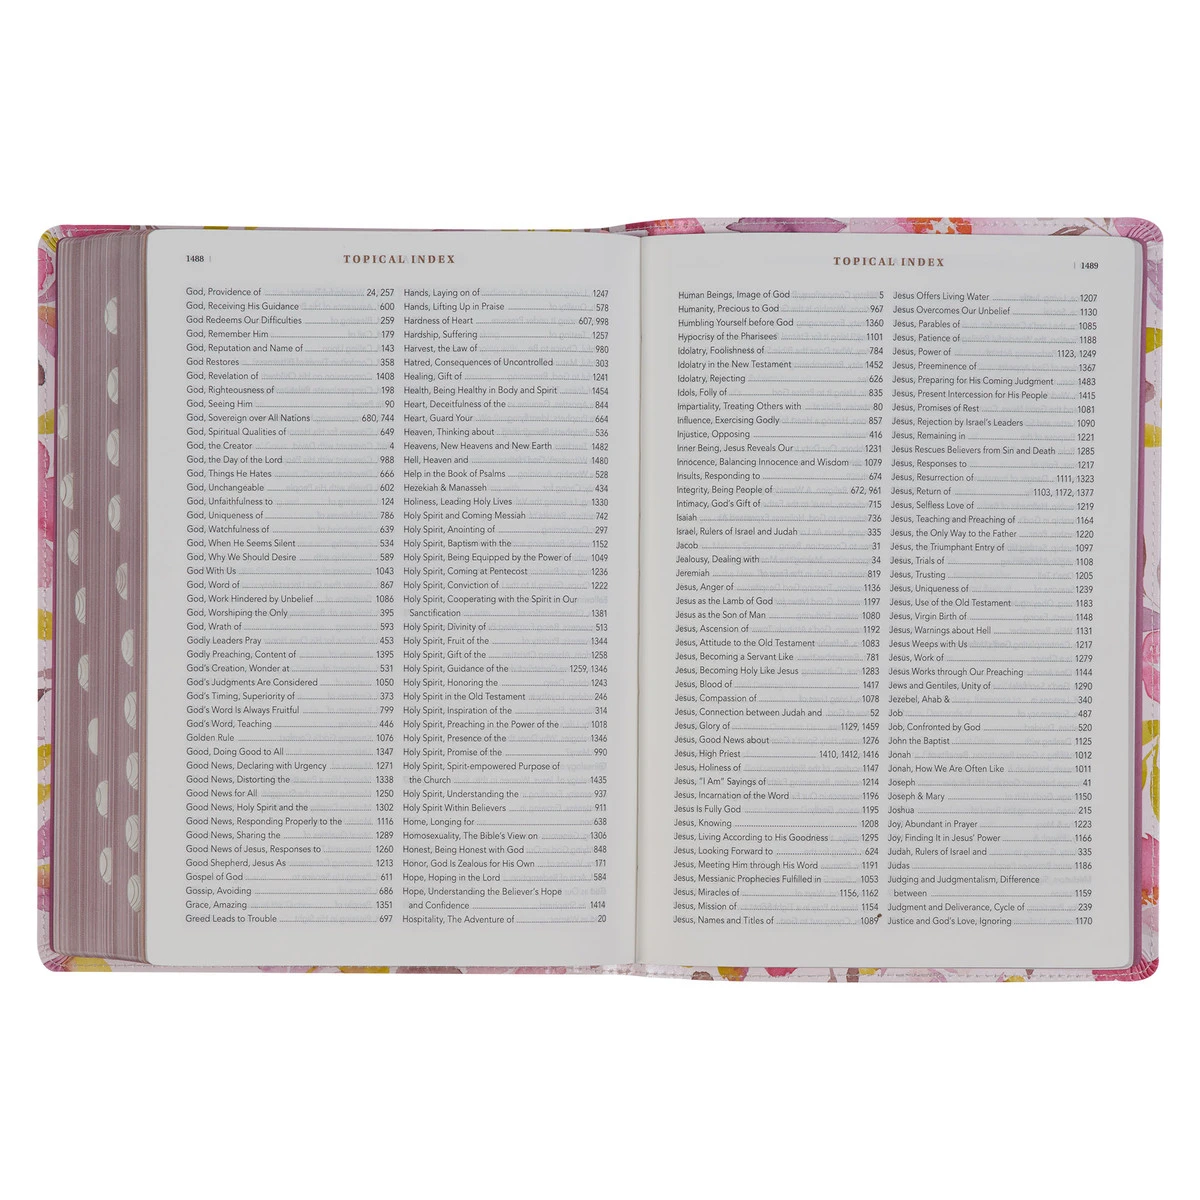 1488
TOPICAL INDEX
God, Providence of 24, 257
God, Receiving His Guidance 600
God Redeems Our Difficulties 259
God, Remember Him 179
God, Reputation and Name of 143
God Restores 358
God, Revelation of 1408
God, Righteousness of 198
God, Seeing Him 90
God, Sovereign over All Nations 680, 744
God, Spiritual Qualities of 649
God, the Creator 4
God, the Day of the Lord 988
God, Things He Hates 666
God, Unchangeable 602
God, Unfaithfulness to 124
God, Uniqueness of 786
God, Watchfulness of 639
God, When He Seems Silent 534
God, Why We Should Desire 589
God With Us 1043
God, Word of 867
God, Work Hindered by Unbelief 1086
God, Worshiping the Only 395
God, Wrath of 593
Godly Leaders Pray 453
Godly Preaching, Content of 1395
God's Creation, Wonder at 531
God's Judgments Are Considered 1050
God's Timing, Superiority of 373
God's Word Is Always Fruitful 799
God's Word, Teaching 446
Golden Rule 1076
Good, Doing Good to All 1347
Good News, Declaring with Urgency 1271
Good News, Distorting the 1338
Good News for All 1250
Good News, Holy Spirit and the 1302
Good News, Responding Properly to the 1116
Good News, Sharing the 1289
Good News of Jesus, Responses to 1260
Good Shepherd, Jesus As 1213
Gospel of God 611
Gossip, Avoiding 886
Grace, Amazing 1351
Greed Leads to Trouble 697
Hands, Laying on of 1247
Hands, Lifting Up in Praise 578
Hardness of Heart 607, 998
Hardship, Suffering 1257
Harvest, the Law of 980
Hatred, Consequences of Uncontrolled 303
Healing, Gift of 1241
Health, Being Healthy in Body and Spirit 1454
Heart, Deceitfulness of the 844
Heart, Guard Your 664
Heaven, Thinking about 536
Heavens, New Heavens and New Earth 1482
Hell, Heaven and 1480
Help in the Book of Psalms 528
Hezekiah & Manasseh 434
Holiness, Leading Holy Lives 1330
Holy Spirit and Coming Messiah 742
Holy Spirit, Anointing of 297
Holy Spirit, Baptism with the 1152
Holy Spirit, Being Equipped by the Power of 1049
Holy Spirit, Coming at Pentecost 1236
Holy Spirit, Conviction of 1222
Holy Spirit, Cooperating with the Spirit in Our
Sanctification 1381
Holy Spirit, Divinity of 513
Holy Spirit, Fruit of the 1344
Holy Spirit, Gift of the 1258
Holy Spirit, Guidance of the 1259, 1346
Holy Spirit, Honoring the 1243
Holy Spirit in the Old Testament 246
Holy Spirit, Inspiration of the 314
Holy Spirit, Preaching in the Power of the 1018
Holy Spirit, Presence of the 1346
Holy Spirit, Promise of the 990
Holy Spirit, Spirit-empowered Purpose of
the Church 1435
Holy Spirit, Understanding the 937
Holy Spirit Within Believers 911
Home, Longing for 638
Homosexuality, The Bible's View on 1306
Honest, Being Honest with God 848
Honor, God Is Zealous for His Own 171
Hope, Hoping in the Lord 584
Hope, Understanding the Believer's Hope
and Confidence 1414
Hospitality, The Adventure of 20
TOPICAL INDEX
1489
Human Beings, Image of God 5
Humanity, Precious to God 967
Humbling Yourself before God 1360
Hypocrisy of the Pharisees 1101
Idolatry, Foolishness of 784
Idolatry in the New Testament 1452
Idolatry, Rejecting 626
Idols, Folly of 835
Impartiality, Treating Others with 80
Influence, Exercising Godly 857
Injustice, Opposing 416
Inner Being, Jesus Reveals Our 1231
Innocence, Balancing Innocence and Wisdom 1079
Insults, Responding to 674
Integrity, Being People of 672, 961
Intimacy, God's Gift of 715
Isaiah 736
Israel, Rulers of Israel and Judah 335
Jacob 31
Jealousy, Dealing with 34
Jeremiah 819
Jesus, Anger of 1136
Jesus as the Lamb of God 1197
Jesus as the Son of Man 1080
Jesus, Ascension of 1192
Jesus, Attitude to the Old Testament 1083
Jesus, Becoming a Servant Like 781
Jesus, Becoming Holy Like Jesus 1283
Jesus, Blood of 1417
Jesus, Compassion of 1078
Jesus, Connection between Judah and 52
Jesus, Glory of 1129, 1459
Jesus, Good News about 1276
Jesus, High Priest 1410, 1412, 1416
Jesus, Holiness of 1147
Jesus, "I Am" Sayings of 1214
Jesus, Incarnation of the Word 1196
Jesus Is Fully God 1195
Jesus, Knowing 1208
Jesus, Living According to His Goodness 1295
Jesus, Looking Forward to 624
Jesus, Meeting Him through His Word 1191
Jesus, Messianic Prophecies Fulfilled in 1053
Jesus, Miracles of 1156, 1162
Jesus, Mission of 1154
Jesus, Names and Titles of 1089
Jesus Offers Living Water 1207
Jesus Overcomes Our Unbelief 1130
Jesus, Parables of 1085
Jesus, Patience of 1188
Jesus, Power of 1123, 1249
Jesus, Preeminence of 1367
Jesus, Preparing for His Coming Judgment 1483
Jesus, Present Intercession for His People 1415
Jesus, Promises of Rest 1081
Jesus, Rejection by Israel's Leaders 1090
Jesus, Remaining in 1221
Jesus Rescues Believers from Sin and Death 1285
Jesus, Responses to 1217
Jesus, Resurrection of 1111, 1323
Jesus, Return of 1103, 1172, 1377
Jesus, Selfless Love of 1219
Jesus, Teaching and Preaching of 1164
Jesus, the Only Way to the Father 1220
Jesus, the Triumphant Entry of 1097
Jesus, Trials of 1108
Jesus, Trusting 1205
Jesus, Uniqueness of 1239
Jesus, Use of the Old Testament 1183
Jesus, Virgin Birth of 1148
Jesus, Warnings about Hell 1131
Jesus Weeps with Us 1217
Jesus, Work of 1279
Jesus Works through Our Preaching 1144
Jews and Gentiles, Unity of 1290
Jezebel, Ahab & 340
Job 487
Job, Confronted by God 520
John the Baptist 1125
Jonah 1012
Jonah, How We Are Often Like 1011
Joseph 41
Joseph & Mary 1150
Joshua 215
Joy, Abundant in Prayer 1223
Joy, Finding It in Jesus' Power 1166
Judah, Rulers of Israel and 335
Judas 1186
Judging and Judgmentalism, Difference
between 1159
Judgment and Deliverance, Cycle of 239
Justice and God's Love, Ignoring 1170